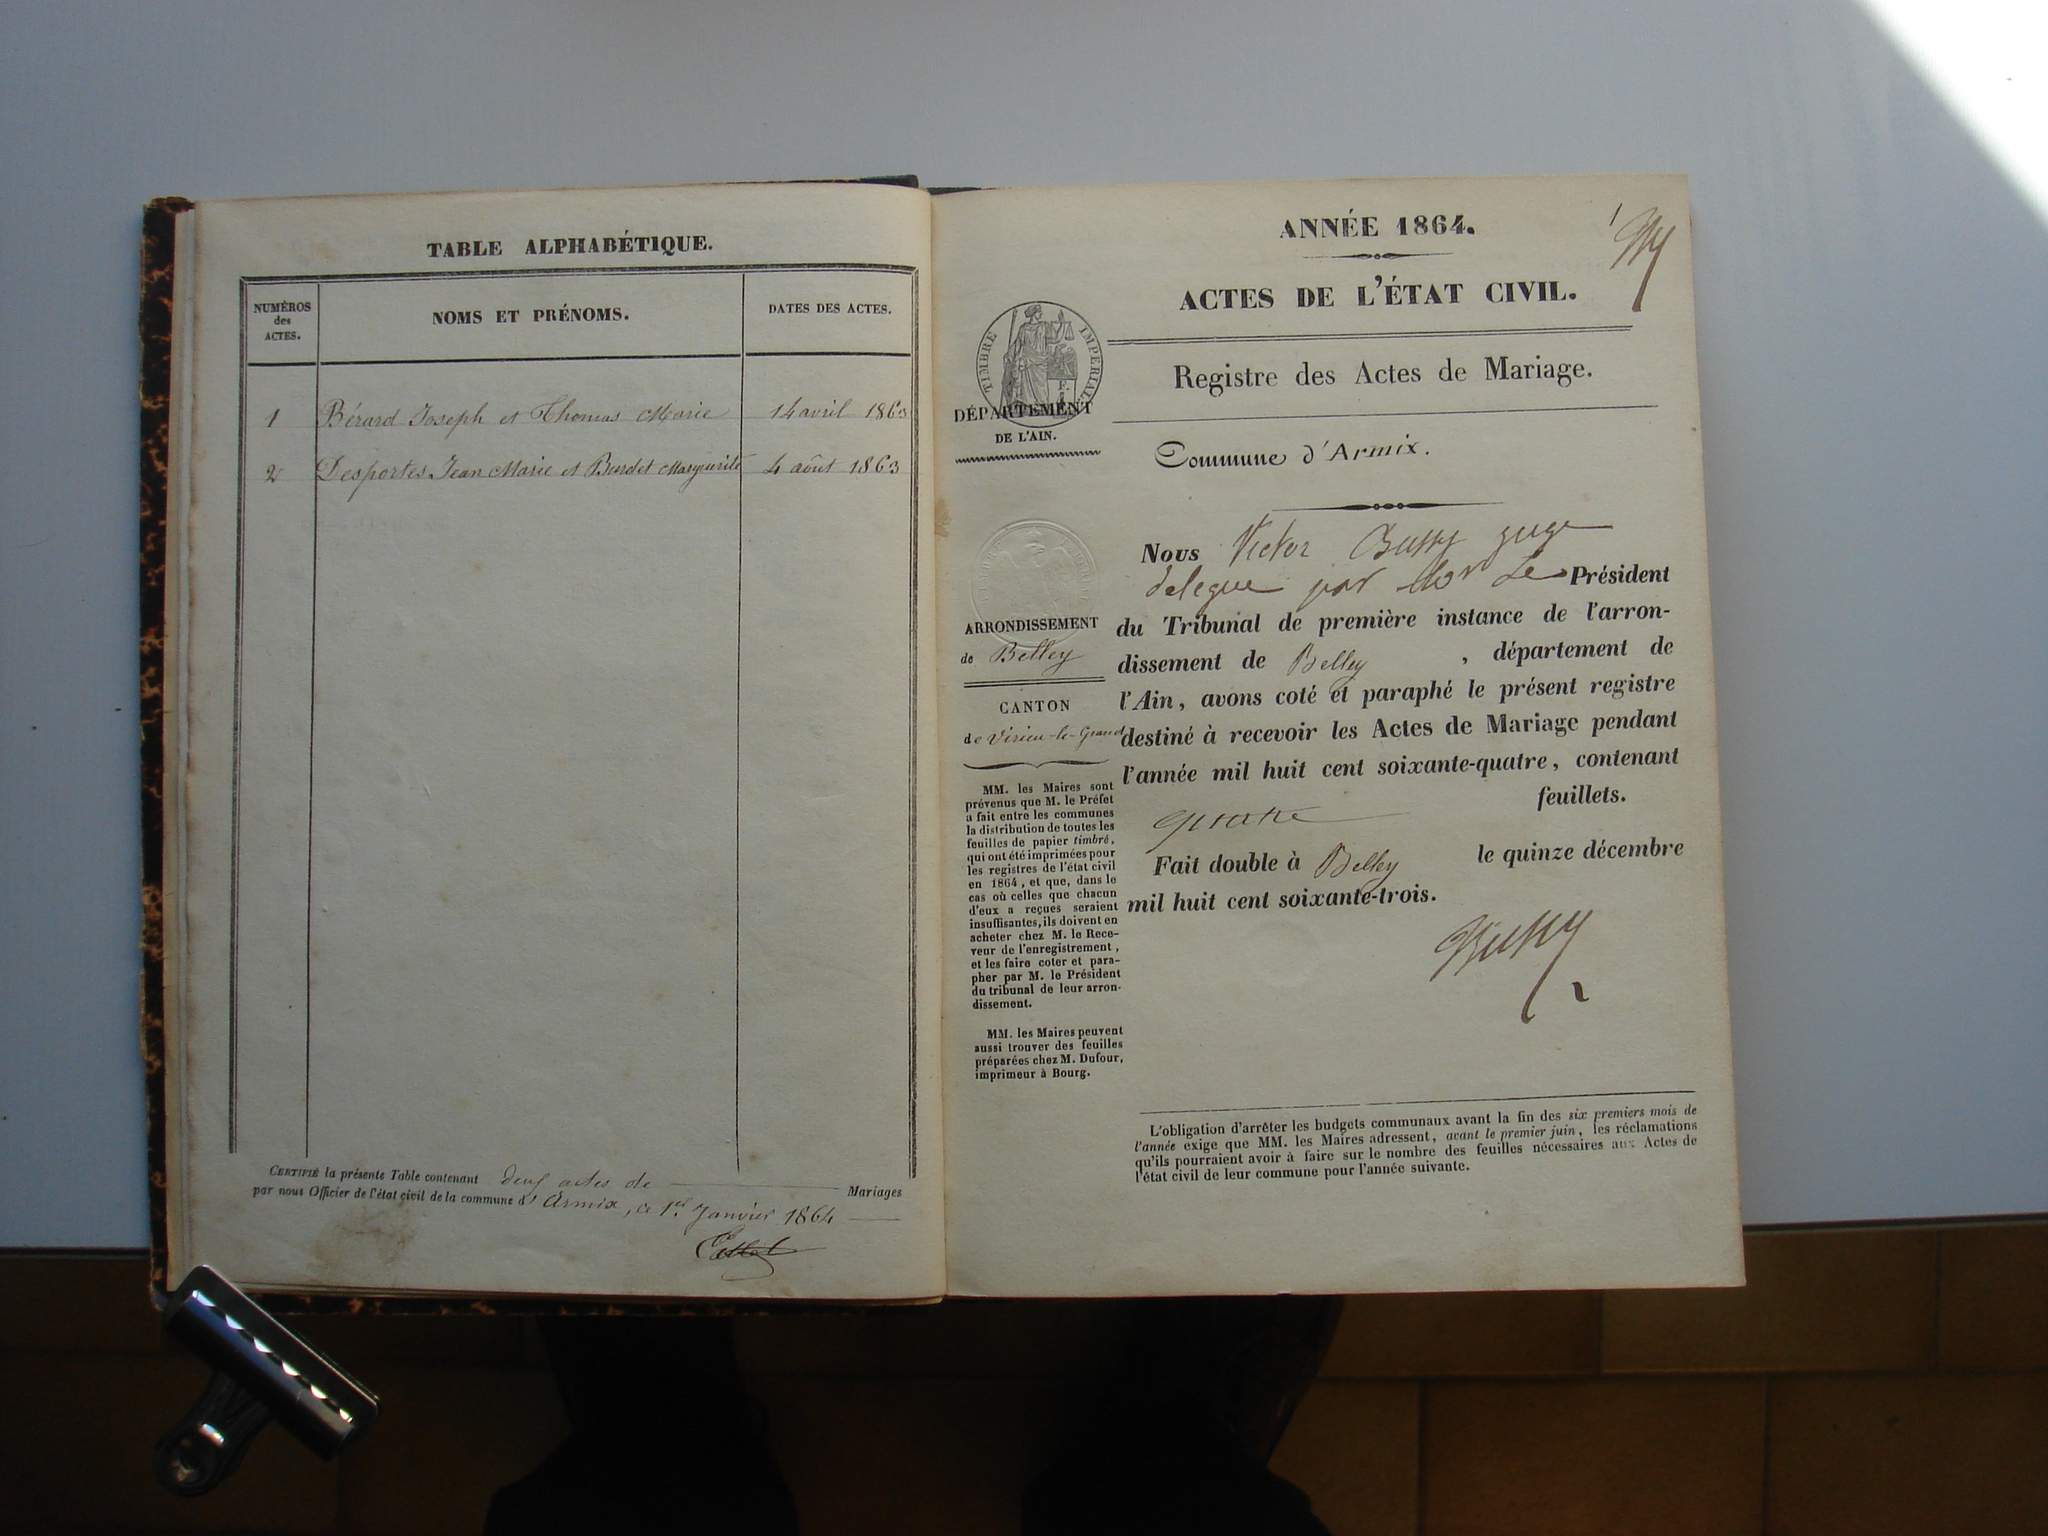 TABLE ALPHABÉTIQUE.
NUMÉROS
des
ACTES.
NOMS ET PRÉNOMS.
DATES DES ACTES.
1 Bérard Joseph et Thomas Marie 14 avril 1863
2 Desportes Jean Marie et Burdet Marguerite 4 août 1863
CERTIFIÉ la présente Table contenant deux actes de Mariages
par nous Officier de l'état civil de la commune d'Armix, ce 1er Janvier 1864
ANNÉE 1864.
1
ACTES DE L'ÉTAT CIVIL.
TIMBRE IMPERIAL
Registre des Actes de Mariage.
DÉPARTEMENT
DE L'AIN.
Commune d'Armix.
ARRONDISSEMENT
de Belley
CANTON
de Virieu-le-Grand
MM. les Maires sont
prévenus que M. le Préfet
a fait entre les communes
la distribution de toutes les
feuilles de papier timbré,
qui ont été imprimées pour
les registres de l'état civil
en 1864, et que, dans le
cas où celles que chacun
d'eux a reçues seraient
insuffisantes, ils doivent en
acheter chez M. le Rece-
veur de l'enregistrement,
et les faire coter et para-
pher par M. le Président
du tribunal de leur arron-
dissement.
MM. les Maires peuvent
aussi trouver des feuilles
préparées chez M. Dufour,
imprimeur à Bourg.
Nous Victor Bussy juge
delegue par Mr Le Président
du Tribunal de première instance de l'arron-
dissement de Belley, département de
l'Ain, avons coté et paraphé le présent registre
destiné à recevoir les Actes de Mariage pendant
l'année mil huit cent soixante-quatre, contenant
quatre feuillets.
Fait double à Belley le quinze décembre
mil huit cent soixante-trois.
Bussy
L'obligation d'arrêter les budgets communaux avant la fin des six premiers mois de
l'année exige que MM. les Maires adressent, avant le premier juin, les réclamations
qu'ils pourraient avoir à faire sur le nombre des feuilles nécessaires aux Actes de
l'état civil de leur commune pour l'année suivante.